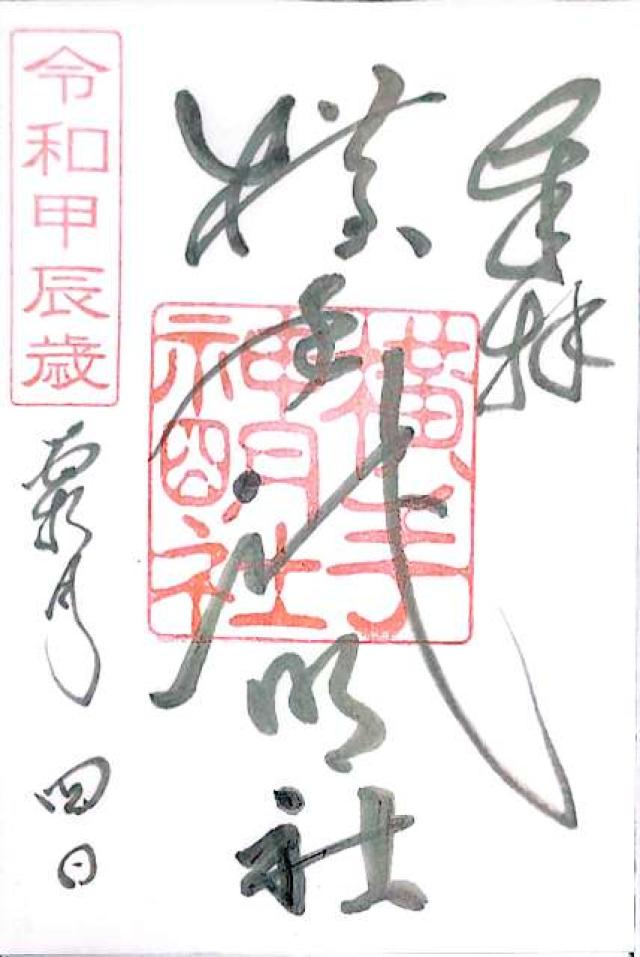 奉拝
横手神明社
横手
神明社
令和甲辰歳
霜月 四日